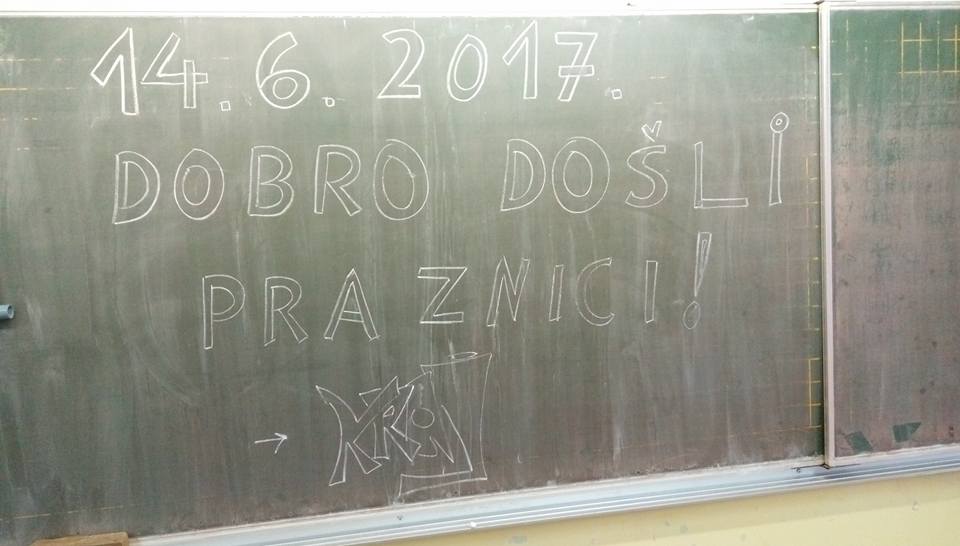 14.6.2017.
DOBRO DOŠLI
PRAZNICI!